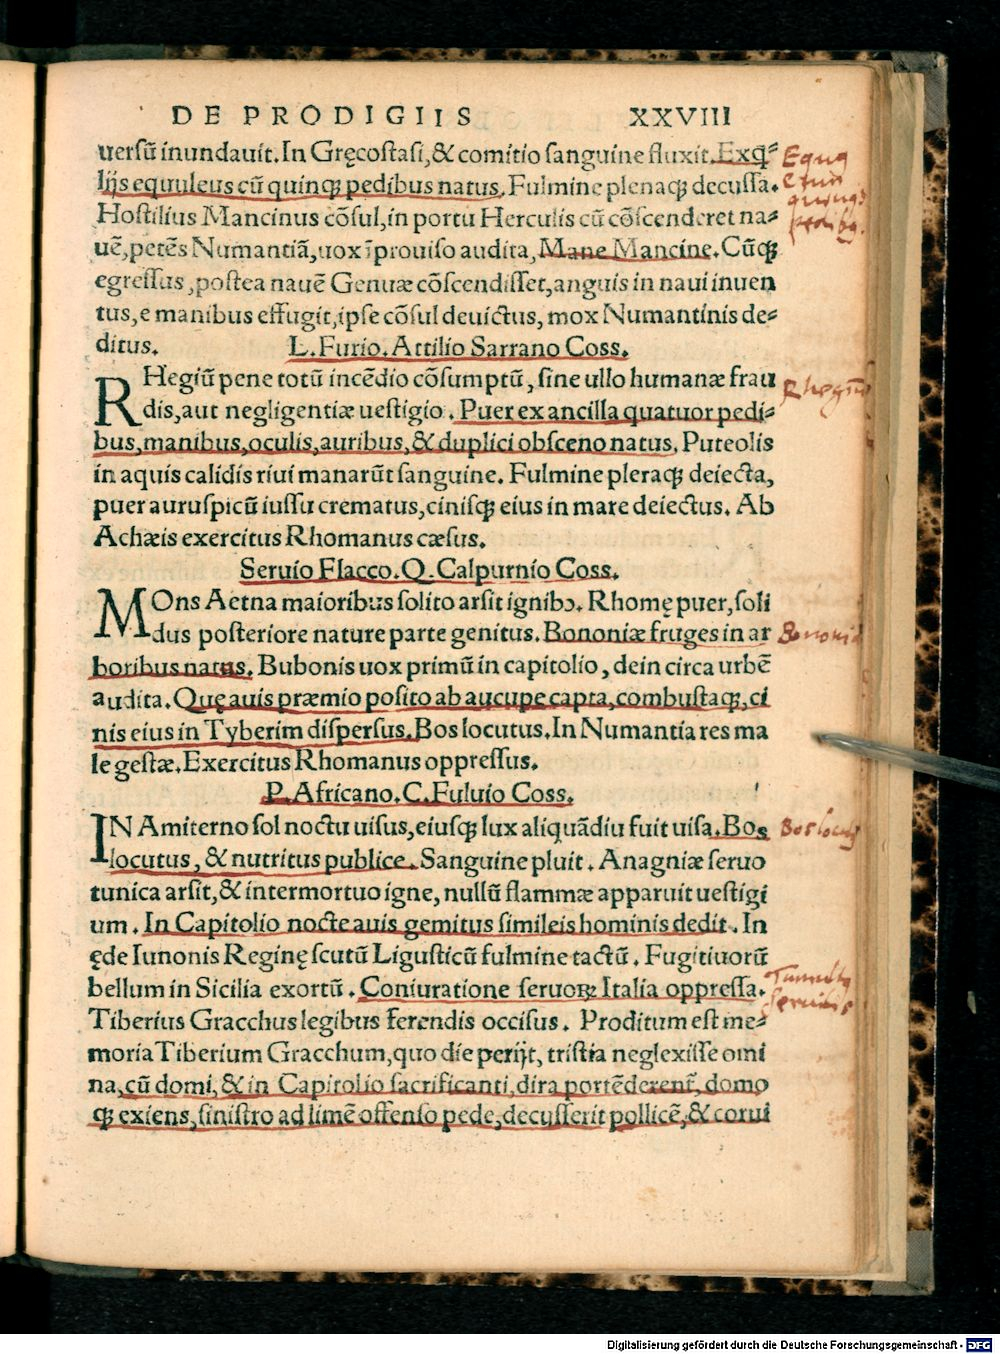 DE PRODIGIIS XXVIII
uersũ inundauit. In Gręcostasi, & comitio sanguine fluxit. Exq̃=
lijs equuleus cũ quinq; pedibus natus. Fulmine plenaq; decussa.
Hostilius Mancinus cõsul, in portu Herculis cũ cõscenderet na=
uẽ, petẽs Numantiã, uox ĩprouiso audita, Mane Mancine. Cũq;
egressus, postea nauẽ Genuæ cõscendisset, anguis in naui inuen
tus, e manibus effugit, ipse cõsul deuictus, mox Numantinis de=
ditus. L. Furio. Attilio Sarrano Coss.
RHegiũ pene totũ incẽdio cõsumptũ, sine ullo humanæ frau
dis, aut negligentiæ uestigio. Puer ex ancilla quatuor pedi=
bus, manibus, oculis, auribus, & duplici obsceno natus. Puteolis
in aquis calidis riui manarũt sanguine. Fulmine pleraq; deiecta,
puer auruspicũ iussu crematus, cinisq; eius in mare deiectus. Ab
Achæis exercitus Rhomanus cæsus.
Seruio Flacco. Q. Calpurnio Coss.
MOns Aetna maioribus solito arsit ignibꝰ. Rhomę puer, soli
dus posteriore nature parte genitus. Bononiæ fruges in ar
boribus natus. Bubonis uox primũ in capitolio, dein circa urbẽ
audita. Quę auis præmio posito ab aucupe capta, combustaq;, ci
nis eius in Tyberim dispersus. Bos locutus. In Numantia res ma
le gestæ. Exercitus Rhomanus oppressus.
P. Africano. C. Fuluio Coss.
IN Amiterno sol noctu uisus, eiusq; lux aliquãdiu fuit uisa. Bos
locutus, & nutritus publice. Sanguine pluit. Anagniæ seruo
tunica arsit, & intermortuo igne, nullũ flammæ apparuit uestigi
um. In Capitolio nocte auis gemitus simileis hominis dedit. In
ęde Iunonis Reginę scutũ Ligusticũ fulmine tactũ. Fugitiuorũ
bellum in Sicilia exortũ. Coniuratione seruoꝝ Italia oppressa.
Tiberius Gracchus legibus ferendis occisus. Proditum est me=
moria Tiberium Gracchum, quo die perijt, tristia neglexisse omi
na, cũ domi, & in Capitolio sacrificanti, dira portẽderent̃, domo
q; exiens, sinistro ad limẽ offenso pede, decusserit pollicẽ, & corui
Rhegiũ
Bononia
Bos locutꝰ
Tumultꝰ
seruilis
Digitalisierung gefördert durch die Deutsche Forschungsgemeinschaft - DFG